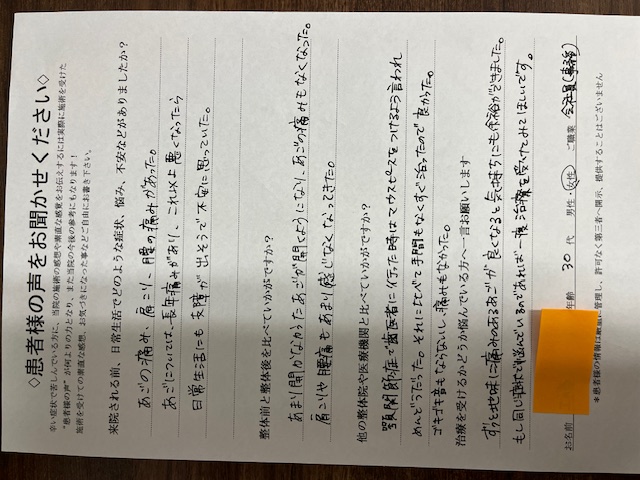 ◇患者様の声をお聞かせください◇
辛い症状で苦しんでいる方に、当院の施術の感想や素直な感覚をお伝えするには実際に施術を受けた
"患者様の声"が何よりの力となり、また当院の今後の参考にもなります！
施術を受けての素直な感想、お気づきになった事などご自由にお書き下さい。
来院される前、日常生活でどのような症状、悩み、不安などがありましたか？
あごの痛み、肩こり、腰の痛みがあった。
あごについては、長年痛みがあり、これ以上悪くなったら
日常生活にも支障が出そうで不安に思っていた。
整体前と整体後を比べていかがですか？
あまり開かなかったあごが開くようになり、あごの痛みもなくなった。
肩こりや腰痛もあまり感じなくなってきた。
他の整体院や医療機関と比べていかがですか？
顎関節症で歯医者に行った時はマウスピースをつけるよう言われ
めんどうだった。それに比べて手間もなくすぐ治ったので良かった。
ゴキゴキ音もならないし、痛みもなかった。
治療を受けるかどうか悩んでいる方へ一言お願いします
ずっと地味に痛みのあるあごが良くなると気持ちにも余裕ができました。
もし同じ症状で悩んでいるのであれば一度治療を受けてみてほしいです。
お名前 年齢 30 代 男性・女性 ご職業 会社員(事務)
＊患者様の情報は厳重に管理し、許可なく第三者へ開示、提供することはございません